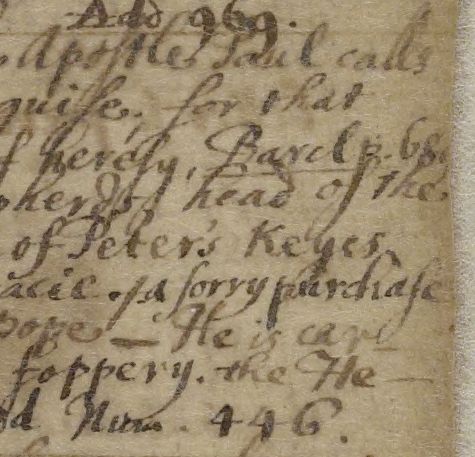 Add 969.
Apostle Paul calls
guise, for that
of heresy, Barcl p. 68
pherds head of the
of Peter's Keyes
acie. / a sorry purchase
pope — He is car-
foppery. the He-
od Num. 446.